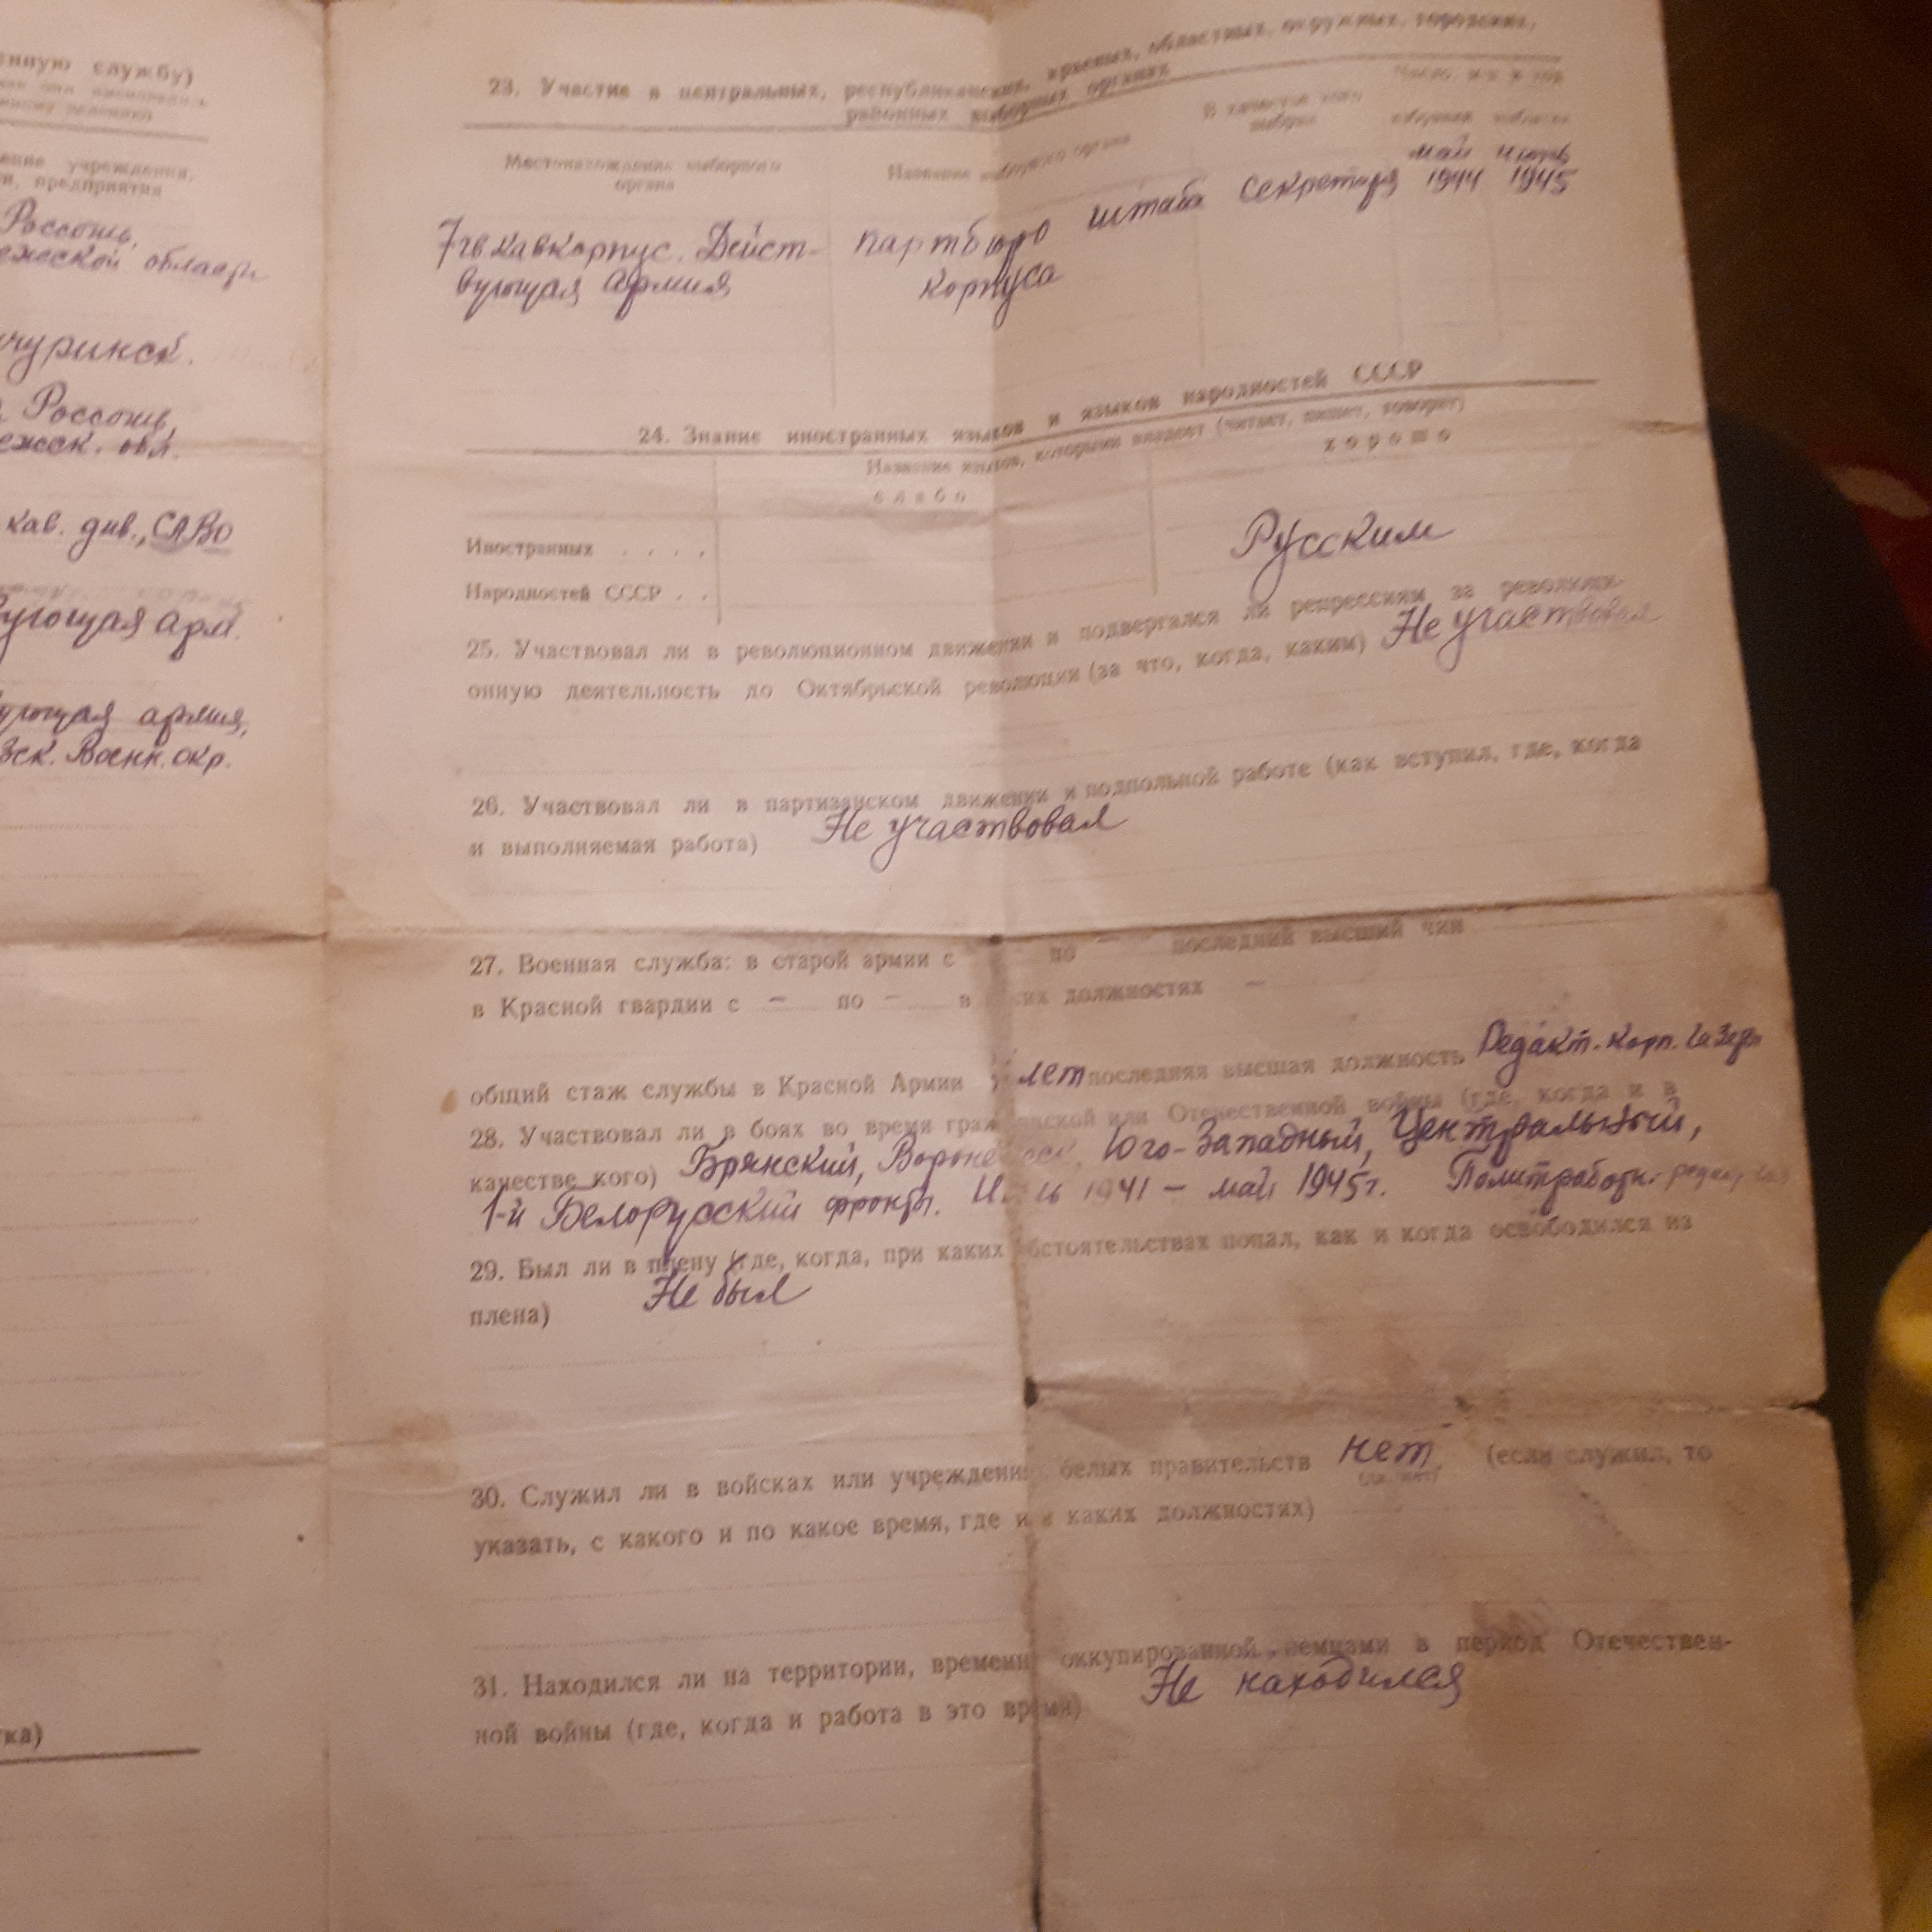 службу)
учреждения,
предприятия
Россошь,
области
чуринск.
Россошь,
обл.
кав. див., САВО
ующая арм.
ующая армия,
Военн. окр.
тка)
23. Участие в центральных, республиканских, краевых, областных, окружных, городских,
районных выборных органах
Местонахождение выборного
органа
Название выборного органа
В качестве кого
выбран
май июнь
7 гв. кавкорпус. Дейст- партбюро штаба Секретаря 1944 1945
вующая Армия корпуса
24. Знание иностранных языков и языков народностей СССР
Название языков, которыми владеет (читает, пишет, говорит)
слабо
хорошо
Иностранных
Народностей СССР
Русским
25. Участвовал ли в революционном движении и подвергался ли репрессиям за революци-
онную деятельность до Октябрьской революции (за что, когда, каким) Не участвовал
26. Участвовал ли в партизанском движении и подпольной работе (как вступил, где, когда
и выполняемая работа) Не участвовал
27. Военная служба: в старой армии с по — последний высший чин
в Красной гвардии с — по — в их должностях —
общий стаж службы в Красной Армии лет последняя высшая должность Редакт. корп. газеты
28. Участвовал ли в боях во время гражданской или Отечественной войны (где, когда и в
качестве кого) Брянский, Юго-Западный, Центральный,
1-й Белорусский фронты. 1941 — май 1945 г. Политработн.
29. Был ли в плену (где, когда, при каких обстоятельствах попал, как и когда освободился из
плена) Не был
30. Служил ли в войсках или учреждениях белых правительств нет (если служил, то
(да, нет)
указать, с какого и по какое время, где и в каких должностях)
31. Находился ли на территории, временно оккупированной немцами в период Отечествен-
ной войны (где, когда и работа в это время) Не находился